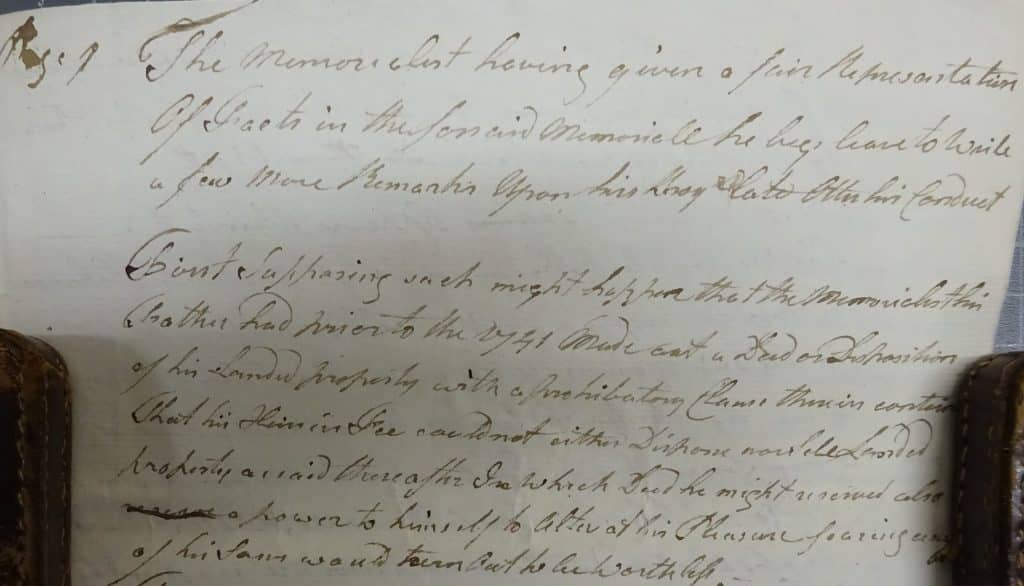 Page 9 The Memorialist having given a fair Representation
Of Facts in the forsaid Memoriall he begs leave to
a few More Remarks Upon his Conduct
First Supposing such might happen that the Memorialist his
Father had prior to the 1741 Made out a Deed or Disposition
of his Landed property with a prohibatory Clause therein
that his Heirs in Fee could not either Dispone nor Sell Landed
property as said thereafter In which Deed he might reserved also
a power to himself to Alter at his Pleasure fearing any
of his Sons would turn out to be worthless